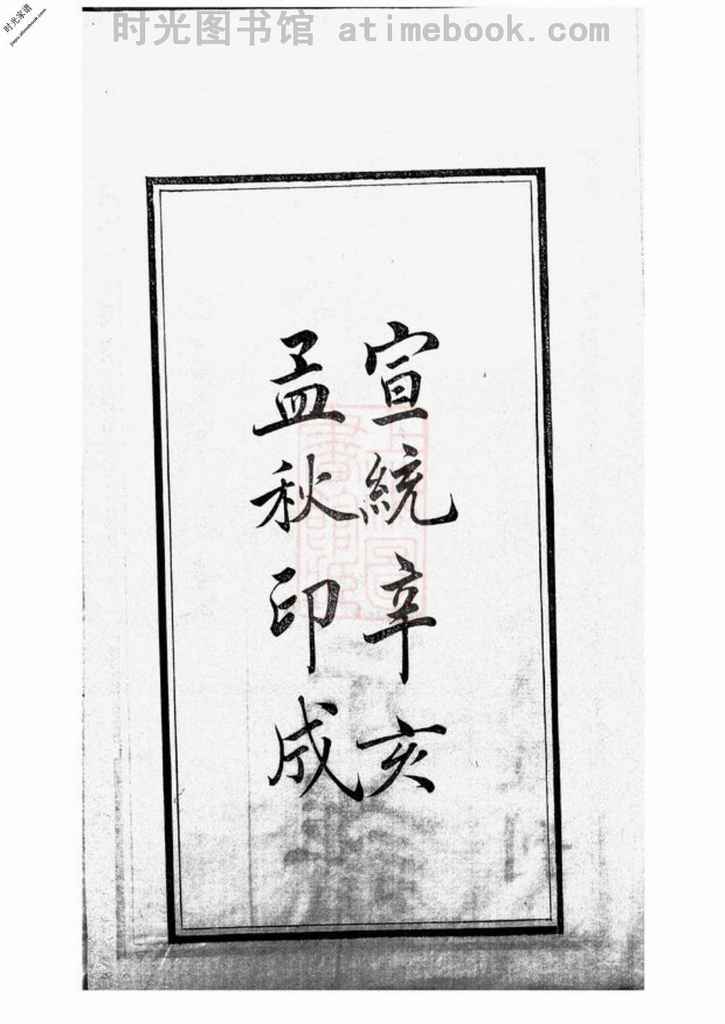 时光图书馆 atimebook.com
时光家谱
宣統辛亥
孟秋印成